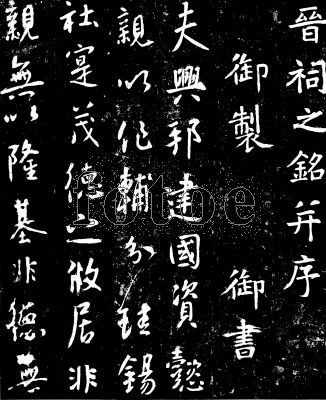 晉祠之銘并序
御製 御書
夫興邦建國資懿
親以作輔分珪錫
社寔茂德之攸居非
親無以隆基非德無
fotoe